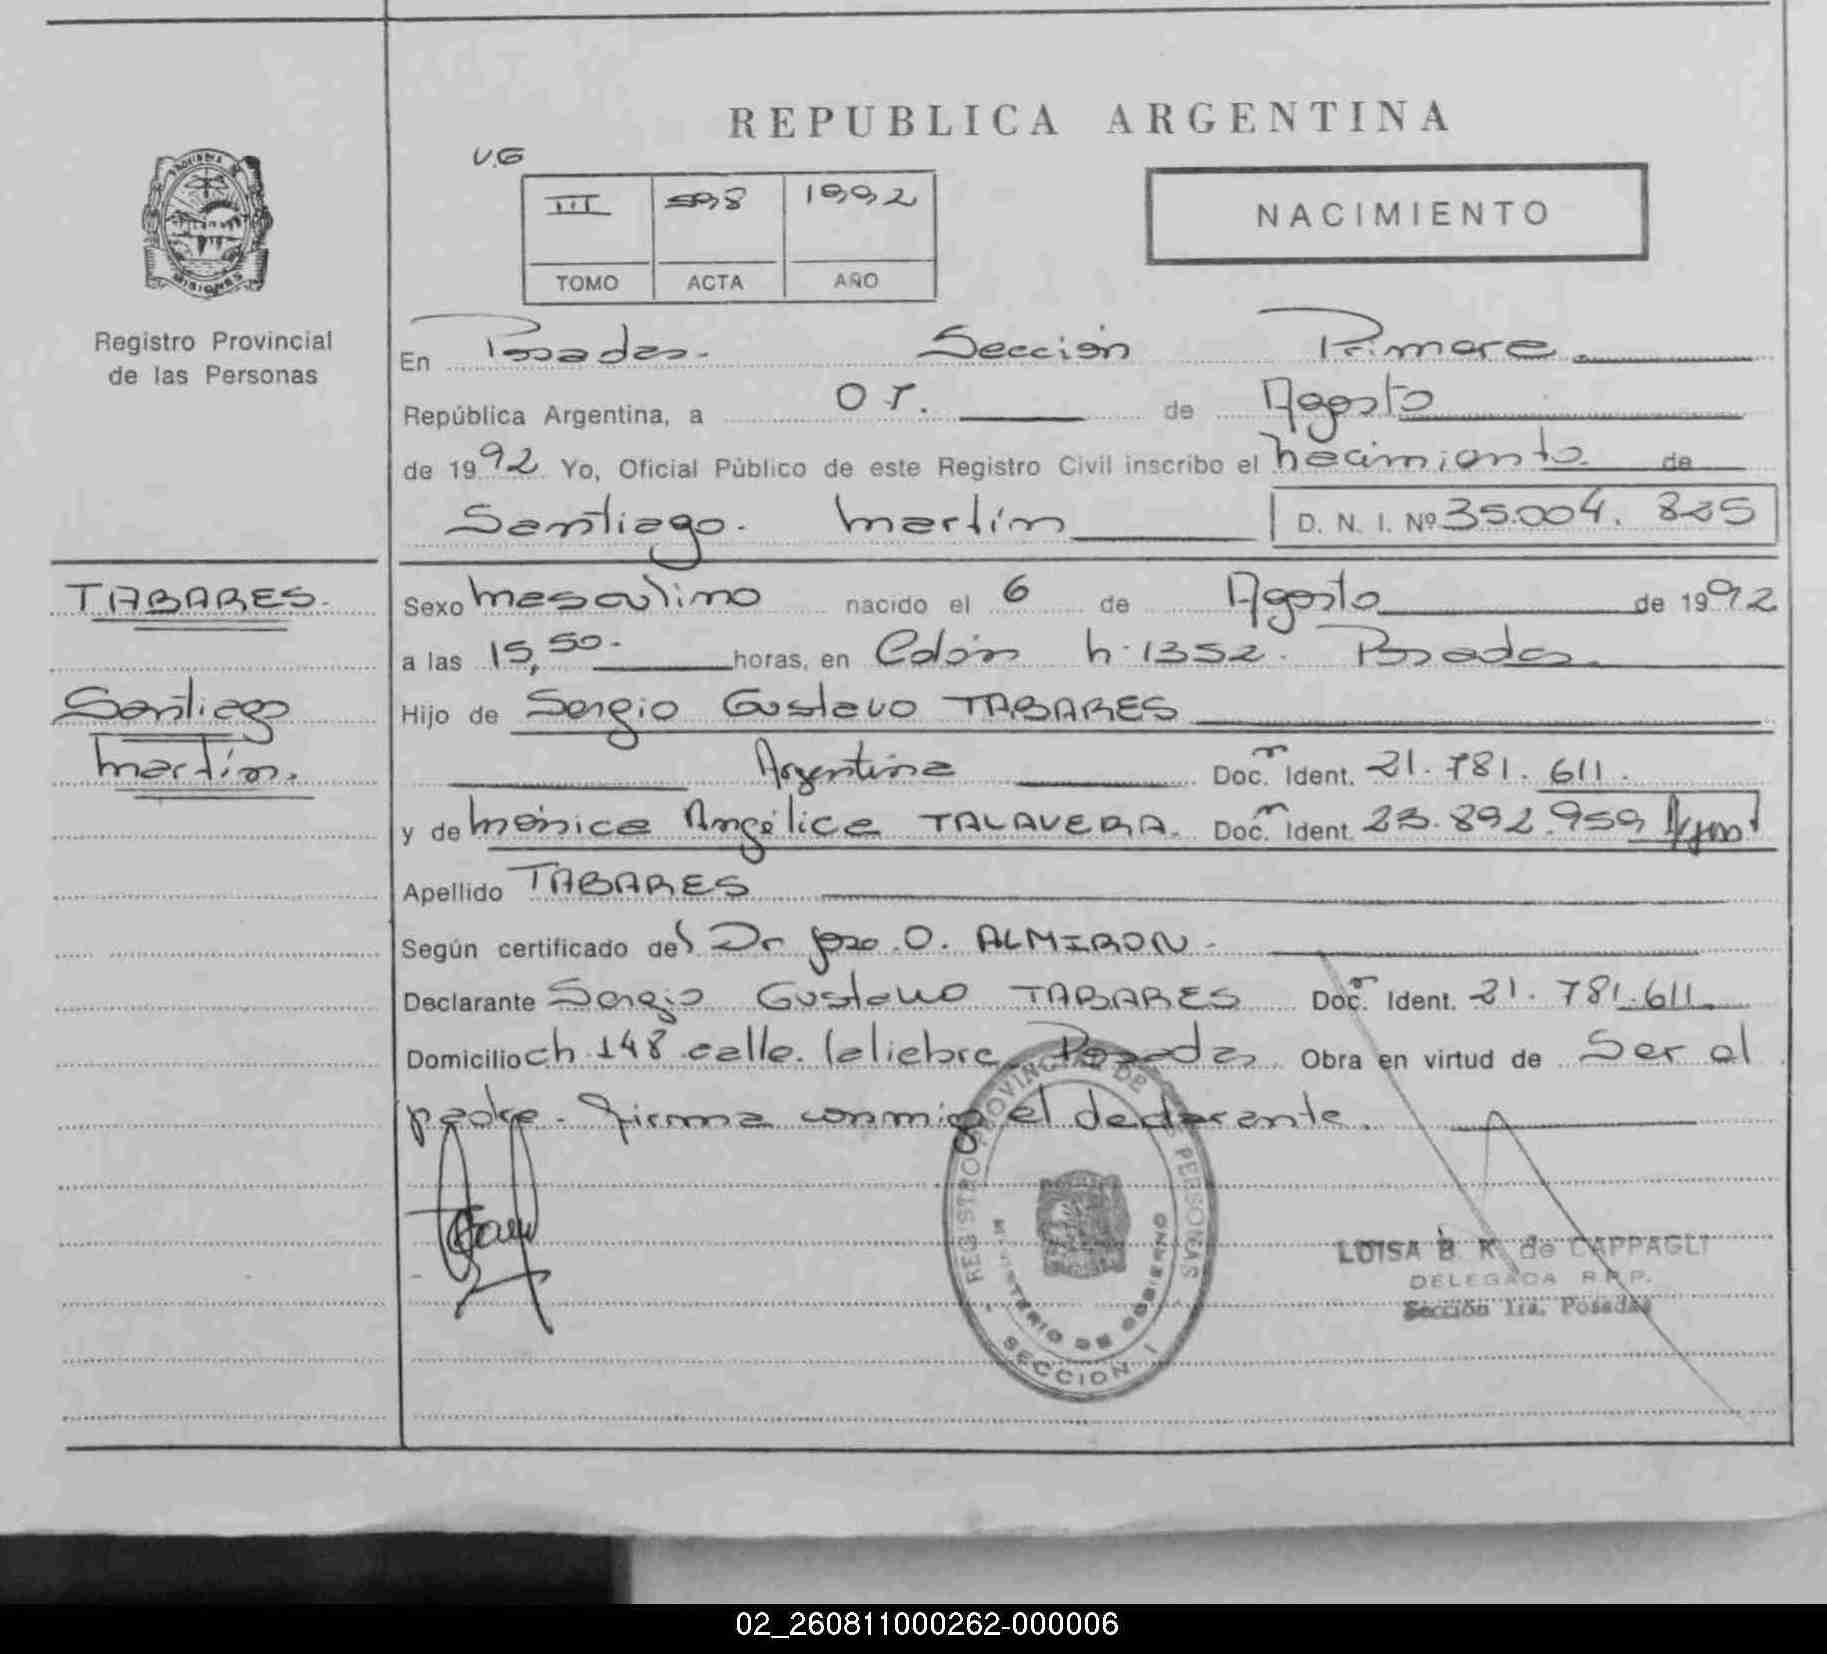 REPUBLICA ARGENTINA
V.G
III 598 1992
TOMO ACTA AÑO
NACIMIENTO
PROVINCIA DE MISIONES
Registro Provincial
de las Personas
En Posadas. Sección Primera.
República Argentina, a 07. de Agosto
de 1992 Yo, Oficial Público de este Registro Civil inscribo el nacimiento de
Santiago. Martín D. N. I. Nº 35.004.825
TABARES.
Santiago
Martín.
Sexo Masculino nacido el 6 de Agosto de 1992
a las 15,50. horas, en Colón n. 1352. Posadas.
Hijo de Sergio Gustavo TABARES
Argentina Doc. Ident. 21.781.611.
y de Mónica Angélica TALAVERA. Doc. Ident. 23.892.959
Apellido TABARES
Según certificado del Dr. O. ALMIRON.
Declarante Sergio Gustavo TABARES Doc. Ident. 21.781.611.
Domicilio ch. 148 calle. Posadas. Obra en virtud de Ser el
padre. firma conmigo el declarante.
REGISTRO PROVINCIAL DE LAS PERSONAS
MINISTERIO DE GOBIERNO
SECCION I
LUISA B. K. de CAPPAGLI
DELEGADA R.P.P.
Sección 1ra. Posadas
02_260811000262-000006